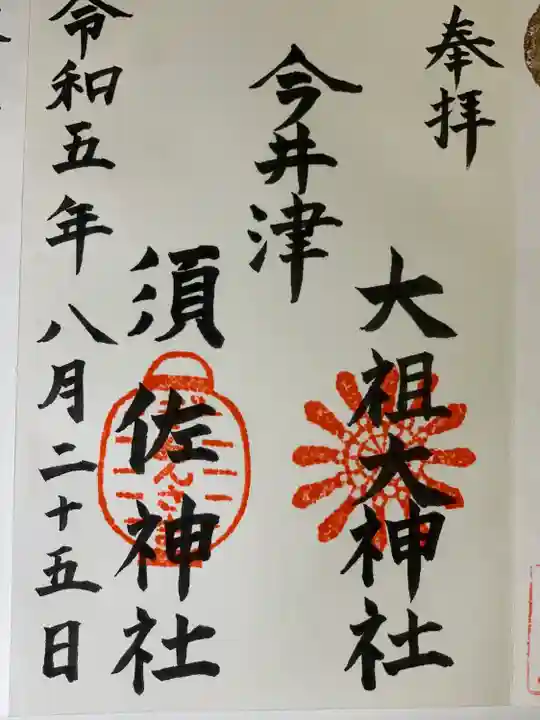 奉拝
大祖大神社
今井津
須佐神社
令和五年八月二十五日